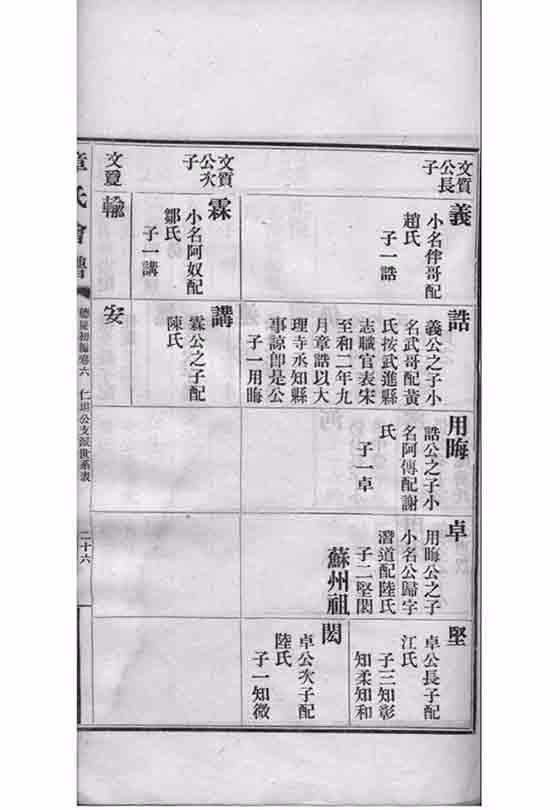 文質
公長
子
義
小名伴哥配
趙氏
子一誥
誥
義公之子小
名武哥配黃
氏按武進縣
志職官表宋
至和二年九
月章誥以大
理寺丞知縣
事諒卽是公
子一用晦
用晦
誥公之子小
名阿傳配謝
氏
子一卓
卓
用晦公之子
小名公歸字
潛道配陸氏
子二堅閎
蘇州祖
堅
卓公長子配
江氏
子三知彰
知柔知和
閎
卓公次子配
陸氏
子一知微
文質
公次
子
霖
小名阿奴配
鄒氏
子一講
講
霖公之子配
陳氏
文
褕
安
章氏會譜
德慶初編卷六
仁坦公支派世系表
二十六